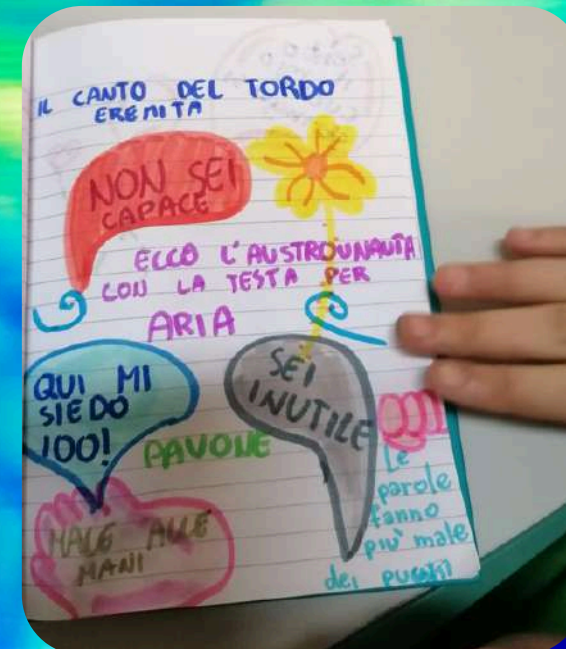 IL CANTO DEL TORDO
EREMITA
NON SEI
CAPACE
ECCO L'AUSTROUNAUTA
CON LA TESTA PER
ARIA
QUI MI
SIEDO
IOO!
PAVONE
SEI
INUTILE
MALE ALLE
MANI
Le
parole
fanno
più male
dei pugni